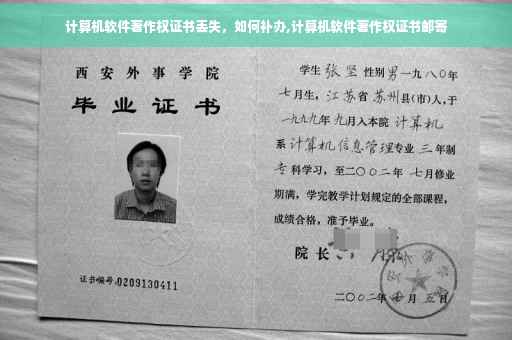 计算机软件著作权证书丢失，如何补办,计算机软件著作权证书邮寄
西安外事学院
毕业证书
证书编号:0209130411
学生 张坚 性别 男 一九八〇年
七月生，江苏省 苏州 县(市)人,于
一九九九年 九月入本院 计算机
系 计算机信息管理 专业 三 年制
专 科学习，至二〇〇二年 七月修业
期满，学完教学计划规定的全部课程，
成绩合格，准予毕业。
院长
二〇〇二年 月 五日